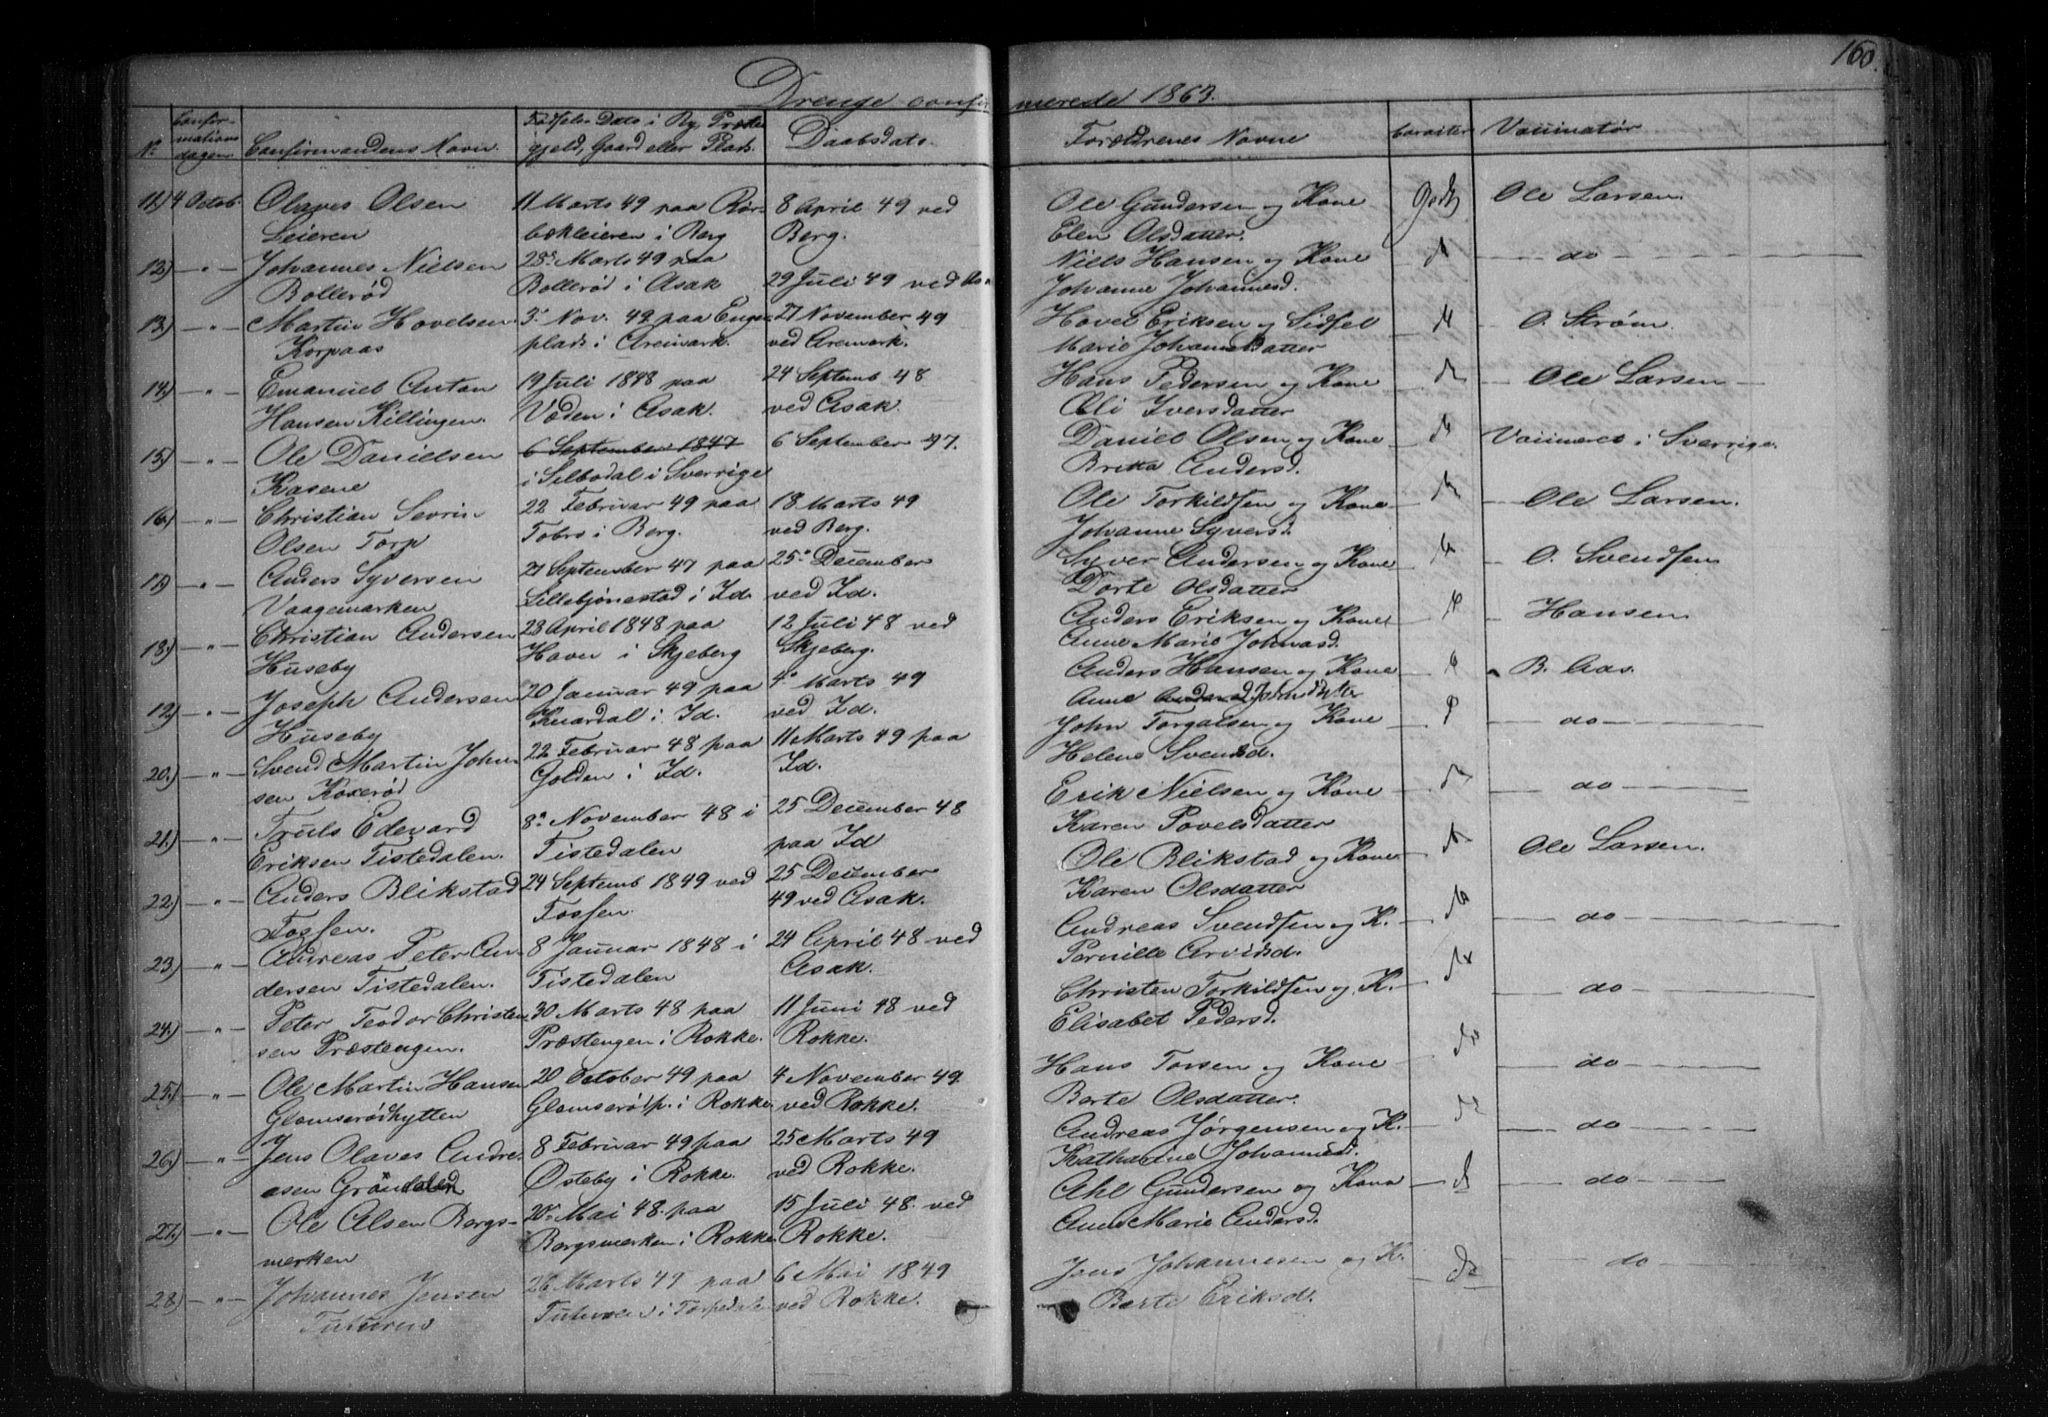 160.
Drenge confirmerede 1863.
No. Confirmations dagen. Confirmandens Navn. Fødsels Dato i By, Præstegjeld, Gaard eller Plads. Daabsdato. Forældrenes Navne Karakter Vaccinatør
11) 4 Octob. Olaves Olsen 11 Marts 49 paa Rør- 8 April 49 ved Ole Gundersen og Kone Godt Ole Larsen.
Leieren bækleieren i Berg Berg. Elen Olsdatter.
12) - " - Johannes Nielsen 28 Marts 49 paa Niels Hansen og Kone do
Bollerød Bollerød i Asak 29 Juli 49 ved Johanne Johannesd.
13) - " - Martin Hovelsen 3 Nov. 49 paa Enge- 27 November 49 Hovel Eriksen og Sidsel O. Strøm.
Korpaas plads i Aremark. ved Aremark. Marie Johannesdatter
14) - " - Emanuel Anton 19 Juli 1848 paa 24 Septemb 48 Hans Pedersen og Kone Ole Larsen
Hansen Killingen. Veden i Asak. ved Asak. Oli Iversdatter
15) - " - Ole Danielsen 6 September 1847 6 September 47. Daniel Olsen og Kone Vaccineret i Sverrige.
Kasene i Silbodal i Sverrige Britta Andersd.
16) - " - Christian Sevrin 22 Februar 49 paa 18 Marts 49 Ole Torkildsen og Kone Ole Larsen.
Olsen Torp Torp i Berg. ved Berg. Johanne Syversd.
17) - " - Anders Syversen 21 September 47 paa 25 December Syver Andersen og Kone O. Svendsen
Vaagemarken Lillebjørnestad i Id. ved Id. Dorte Olsdatter
18) - " - Christian Andersen 28 April 1848 paa 12 Juli 48 ved Anders Eriksen og Kone Hansen
Huseby Havn i Skjeberg Skjeberg. Anne Marie Johnasd.
19) - " - Joseph Andersen 20 Januar 49 paa 4 Marts 49 Anders Hansen og Kone B. Aas.
Huseby Knardal i Id. ved Id. Anne Johnsdatter
20.) - " - Svend Martin John- 22 Februar 48 paa 11 Marts 49 paa John Torgalsen og Kone do
sen Koxerød Golden i Id. Id. Helene Svendsd.
21.) - " - Truls Edevard 8 November 48 i 25 December 48 Erik Nielsen og Kone do
Eriksen Tistedalen. Tistedalen paa Id Karen Povelsdatter
22.) - " - Anders Blikstad 24 Septemb 1849 ved 25 December Ole Blikstad og Kone Ole Larsen.
Fossen. Fossen. 49 ved Asak. Karen Olsdatter
23.) - " - Andreas Peter An- 8 Januar 1848 i 24 April 48 ved Andreas Svendsen og K. do
dersen Tistedalen. Tistedalen Asak. Pernille Arvidsd.
24.) - " - Peter Teodor Christen 30 Marts 48 paa 11 Juni 48 ved Christen Torkildsen og K. do
sen Præstengen. Præstengen i Rokke. Rokke. Elisabet Pedersd.
25.) - " - Ole Martin Hansen 20 October 49 paa 4 November 49 Hans Torsen og Kone do
Glomserødhytten Glomserødp. i Rokke. ved Rokke. Berte Olsdatter.
26.) - " - Jens Olaves Andre- 8 Februar 49 paa 25 Marts 49 Andreas Jørgensen og K. do
asen Grøndalen Østeby i Rokke. ved Rokke. Katharine Johannesd.
27.) - " - Ole Olsen Borgs- 20 Mai 48 paa 15 Juli 48 ved Ahl Gundersen og Kone do
merken Borgsmerken i Rokke Rokke. Anne Marie Andersd.
28) - " - Johannes Jensen 26 Marts 49 paa 6 Mai 1849 Jens Johannesen og K. do
Tuturen Tuturen i Torpedalen ved Rokke. Berte Eriksd.